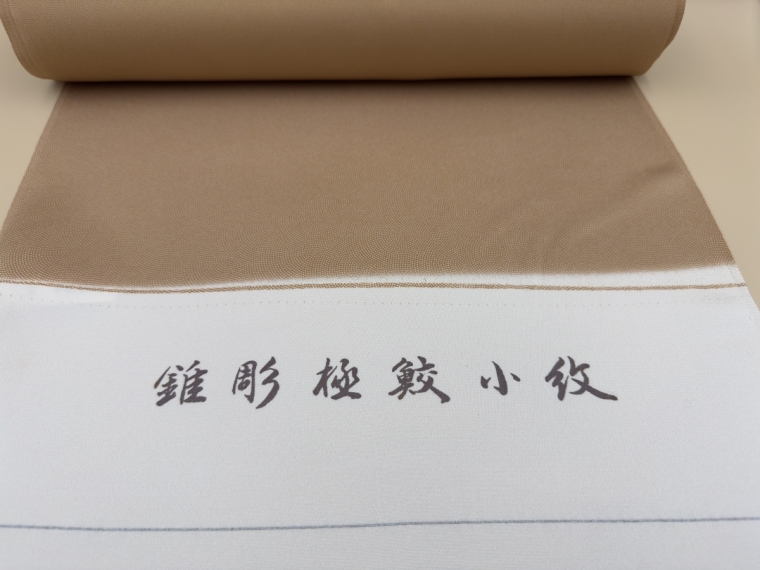 錐彫極鮫小紋